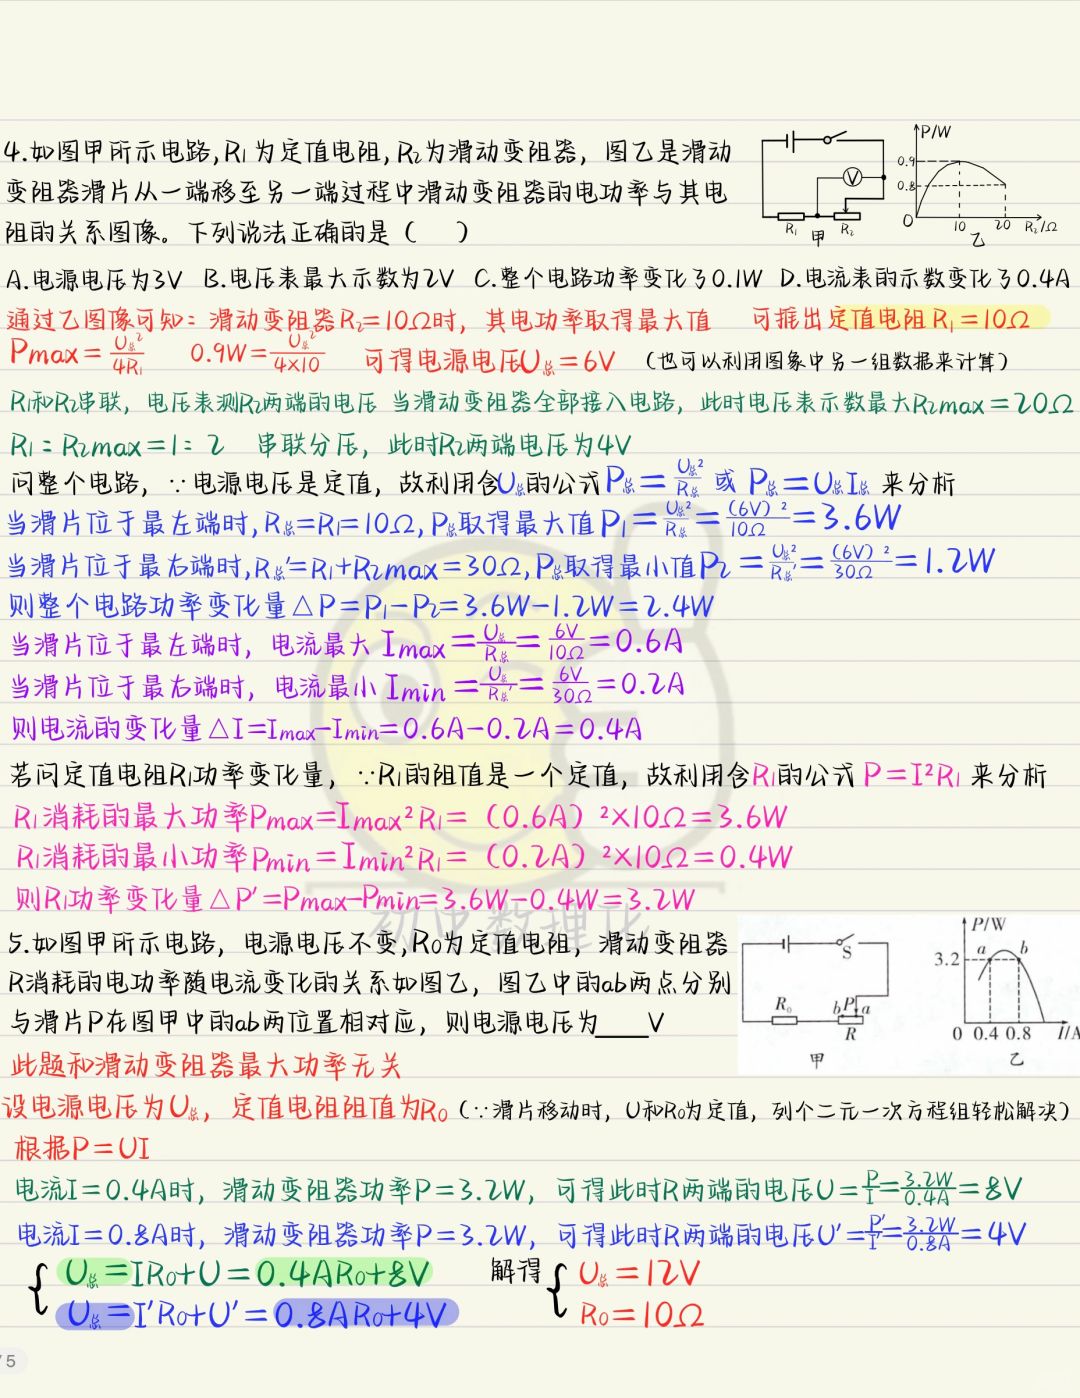 4.如图甲所示电路,R₁为定值电阻,R₂为滑动变阻器，图乙是滑动
变阻器滑片从一端移至另一端过程中滑动变阻器的电功率与其电
阻的关系图像。下列说法正确的是（　）
V
R₁ 甲 R₂
P/W
0.9
0.8
0 10 20 R₂/Ω
乙
A.电源电压为3V B.电压表最大示数为2V C.整个电路功率变化了0.1W D.电流表的示数变化了0.4A
通过乙图像可知：滑动变阻器R₂=10Ω时，其电功率取得最大值 可推出定值电阻R₁=10Ω
Pmax=U总²/4R₁ 0.9W=U总²/4×10 可得电源电压U总=6V （也可以利用图象中另一组数据来计算）
R₁和R₂串联，电压表测R₂两端的电压 当滑动变阻器全部接入电路，此时电压表示数最大R₂max=20Ω
R₁：R₂max=1：2 串联分压，此时R₂两端电压为4V
问整个电路，∵电源电压是定值，故利用含U总的公式P总=U总²/R总 或 P总=U总I总 来分析
当滑片位于最左端时,R总=R₁=10Ω,P总取得最大值P₁=U总²/R总=(6V)²/10Ω=3.6W
当滑片位于最右端时,R总′=R₁+R₂max=30Ω,P总取得最小值P₂=U总²/R总′=(6V)²/30Ω=1.2W
则整个电路功率变化量△P=P₁-P₂=3.6W-1.2W=2.4W
当滑片位于最左端时，电流最大 Imax=U总/R总=6V/10Ω=0.6A
当滑片位于最右端时，电流最小 Imin=U总/R总′=6V/30Ω=0.2A
则电流的变化量△I=Imax-Imin=0.6A-0.2A=0.4A
若问定值电阻R₁功率变化量，∵R₁的阻值是一个定值，故利用含R₁的公式 P=I²R₁ 来分析
R₁消耗的最大功率Pmax=Imax²R₁=（0.6A）²×10Ω=3.6W
R₁消耗的最小功率Pmin=Imin²R₁=（0.2A）²×10Ω=0.4W
则R₁功率变化量△P′=Pmax-Pmin=3.6W-0.4W=3.2W
初中数理化
5.如图甲所示电路，电源电压不变,R₀为定值电阻，滑动变阻器
R消耗的电功率随电流变化的关系如图乙，图乙中的ab两点分别
与滑片P在图甲中的ab两位置相对应，则电源电压为____V
S
R₀ b P a
R
甲
P/W
a b
3.2
0 0.4 0.8 I/A
乙
此题和滑动变阻器最大功率无关
设电源电压为U总，定值电阻阻值为R₀（∵滑片移动时，U和R₀为定值，列个二元一次方程组轻松解决）
根据P=UI
电流I=0.4A时，滑动变阻器功率P=3.2W，可得此时R两端的电压U=P/I=3.2W/0.4A=8V
电流I=0.8A时，滑动变阻器功率P=3.2W，可得此时R两端的电压U′=P′/I′=3.2W/0.8A=4V
{ U总=IR₀+U=0.4AR₀+8V 解得 { U总=12V
U总=I′R₀+U′=0.8AR₀+4V R₀=10Ω
/5